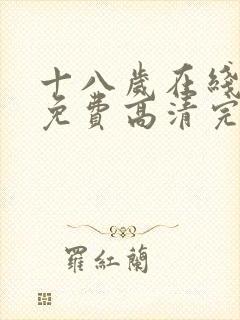 十八歲在綫
免費高清完
羅紅蘭